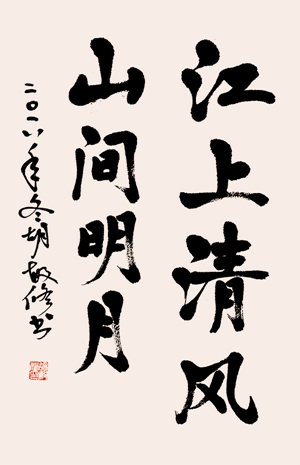 江上清风
山间明月
二〇一八年冬胡敬修书